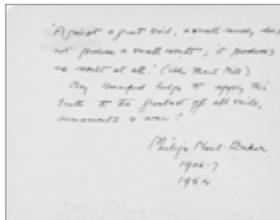 'Against a great evil, a small remedy does
not produce a small result; it produces
no result at all.' (John Stuart Mill)
May Mankind help to apply this
truth to the greatest of all evils,
armaments & war!
Philip Noel-Baker
1906-7
1954